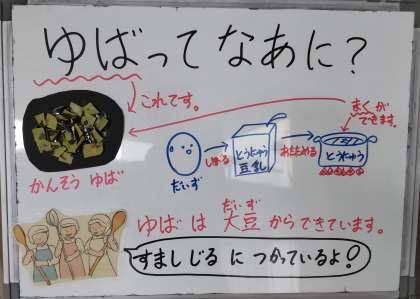 ゆばってなあに？
これです。
かんそう ゆば
だいず
しぼる
とうにゅう
豆乳
あたためる
とうにゅう
まくが
できます。
ゆばは大豆からできています。
だいず
すましじるにつかっているよ！